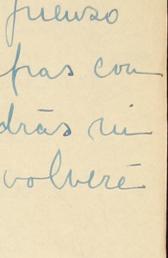 pienso
fras con
drás ni
volveré